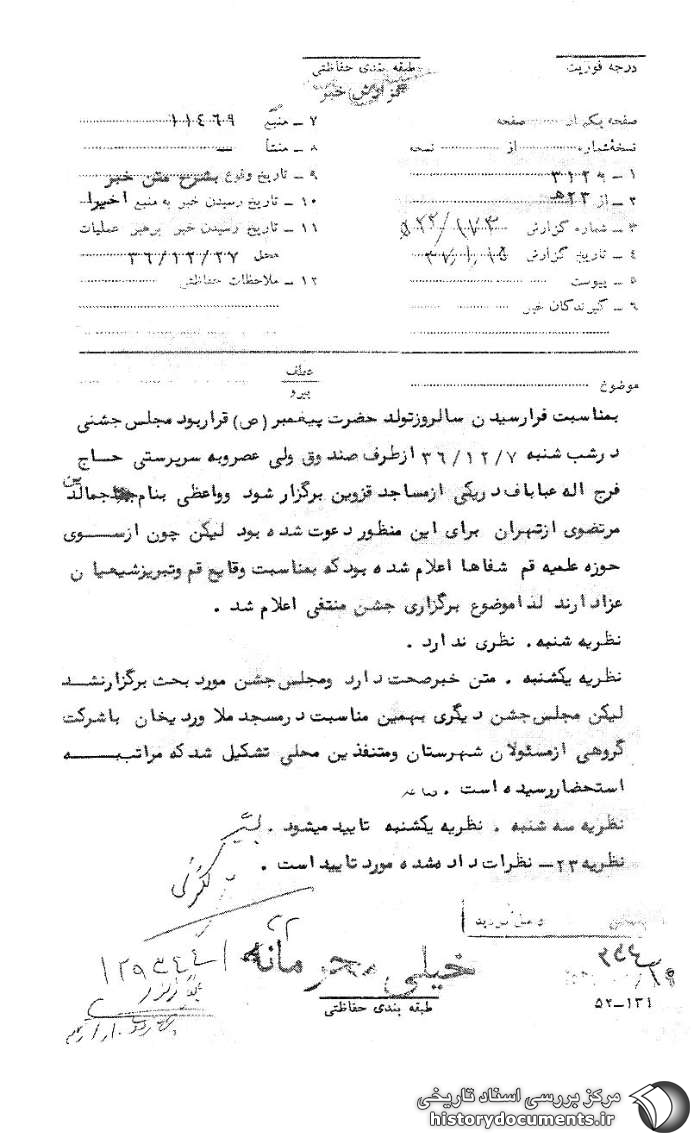 درجه فوریت
طبقه بندی حفاظتی
گزارش خبر
صفحه یکم از ........ صفحه
نسخه شماره ........ از ........ نسخه
۱ ـ به ۳۱۲
۲ ـ از ۲۳ هـ
۳ ـ شماره گزارش
۴ ـ تاریخ گزارش
۵ ـ پیوست
۶ ـ گیرندگان خبر
۷ ـ منبع ۱۱۴۶۹
۸ ـ منشأ —
۹ ـ تاریخ وقوع بشرح متن خبر
۱۰ ـ تاریخ رسیدن خبر به منبع اخیرا
۱۱ ـ تاریخ رسیدن خبر برهبر عملیات
محل ۳۶/۱۲/۲۷
۱۲ ـ ملاحظات حفاظتی
موضوع
عطف
پیرو
بمناسبت فرارسیدن سالروزتولد حضرت پیغمبر (ص) قراربود مجلس جشنی
درشب شنبه ۳۶/۱۲/۷ ازطرف صندوق ولی عصروبه سرپرستی حاج
فرج اله عباباف دریکی ازمساجد قزوین برگزار شود وواعظی بنام جمالدین
مرتضوی ازتهران برای این منظور دعوت شده بود لیکن چون ازسوی
حوزه علمیه قم شفاها اعلام شده بود که بمناسبت وقایع قم وتبریزشیعیان
عزادارند لذاموضوع برگزاری جشن منتفی اعلام شد .
نظریه شنبه . نظری ندارد .
نظریه یکشنبه . متن خبرصحت دارد ومجلس جشن مورد بحث برگزارنشد
لیکن مجلس جشن دیگری بهمین مناسبت درمسجد ملا وردیخان باشرکت
گروهی ازمسئولان شهرستان ومتنفذین محلی تشکیل شد که مراتب به
استحضاررسیده است .
نظریه سه شنبه . نظریه یکشنبه تایید میشود .
نظریه ۲۳ـ نظرات داده شده مورد تایید است .
۲۲
خیلی محرمانه
طبقه بندی حفاظتی
۵۲–۱۳۱
مرکز بررسی اسناد تاریخی
historydocuments.ir